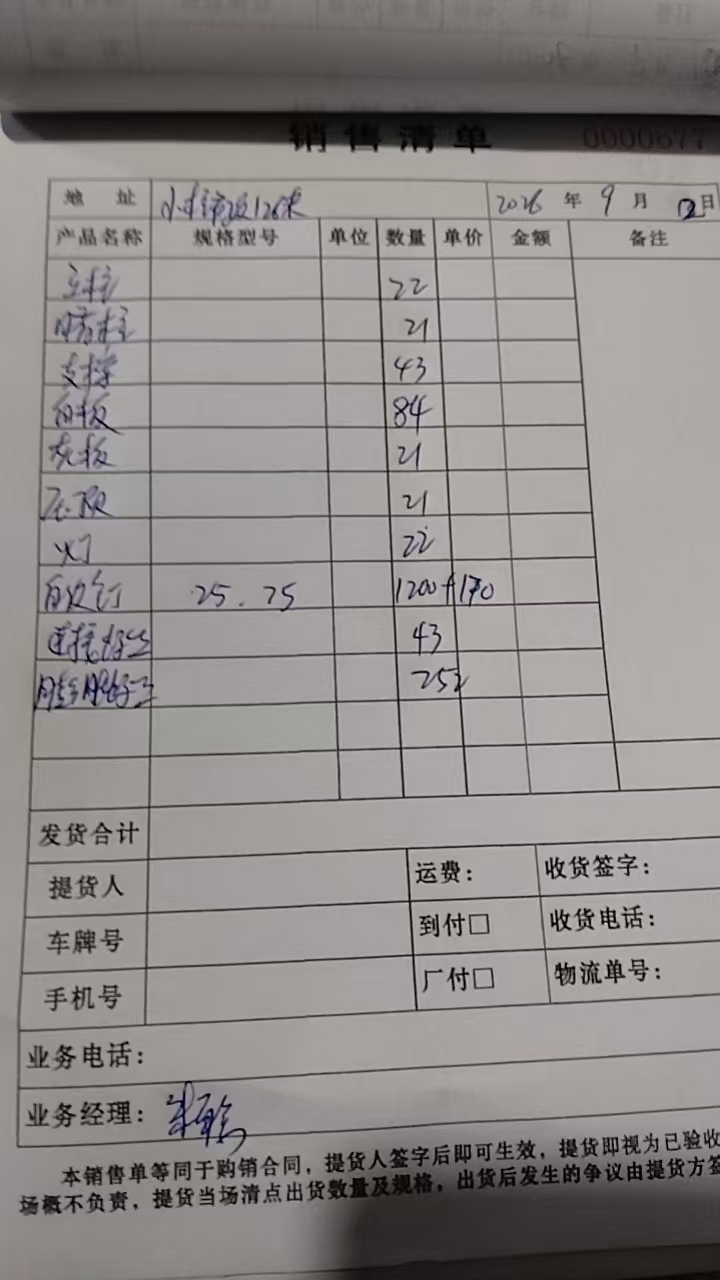 销售清单 0000677
地址 小 市政126米 2026年9月12日
产品名称 规格型号 单位 数量 单价 金额 备注
立柱 22
防柱 21
支撑 43
白板 84
花板 21
压顶 21
灯 22
自攻钉 25.75 1200+170
连接 43
252
发货合计
提货人 运费： 收货签字：
车牌号 到付□ 收货电话：
手机号 厂付□ 物流单号：
业务电话：
业务经理：
本销售单等同于购销合同，提货人签字后即可生效，提货即视为已验收
场概不负责，提货当场清点出货数量及规格，出货后发生的争议由提货方签